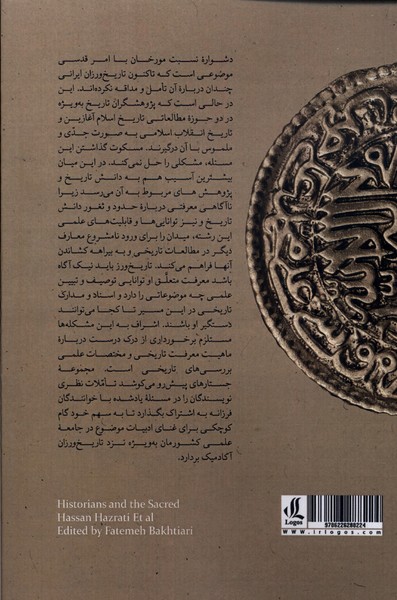 دشوارهٔ نسبت مورخان با امر قدسی
موضوعی است که تاکنون تاریخ‌ورزان ایرانی
چندان دربارهٔ آن تأمل و مداقه نکرده‌اند. این
در حالی است که پژوهشگران تاریخ به‌ویژه
در دو حوزهٔ مطالعاتی تاریخ اسلام آغازین و
تاریخ انقلاب اسلامی به صورت جدّی و
ملموس با آن درگیرند. مسکوت گذاشتن این
مسئله، مشکلی را حل نمی‌کند. در این میان
بیشترین آسیب هم به دانش تاریخ و
پژوهش های مربوط به آن می‌رسد زیرا
ناآگاهی معرفتی دربارهٔ حدود و ثغور دانش
تاریخ و نیز توانایی‌ها و قابلیت‌های علمی
این رشته، میدان را برای ورود نامشروع معارف
دیگر در مطالعات تاریخی و به بیراهه کشاندن
آنها فراهم می‌کند. تاریخ‌ورز باید نیک آگاه
باشد معرفت متعلّق او توانایی توصیف و تبیین
علمی چه موضوعاتی را دارد و اسناد و مدارک
تاریخی در این مسیر تا کجا می‌توانند
دستگیر او باشند. اشراف به این مشکله‌ها
مستلزم برخورداری از درک درست دربارهٔ
ماهیت معرفت تاریخی و مختصات علمی
بررسی‌های تاریخی است. مجموعهٔ
جستارهای پیش‌رو می‌کوشد تأملات نظری
نویسندگان را در مسئلهٔ یادشده با خوانندگان
فرزانه به اشتراک بگذارد تا به سهم خود گام
کوچکی برای غنای ادبیات موضوع در جامعهٔ
علمی کشورمان به‌ویژه نزد تاریخ‌ورزان
آکادمیک بردارد.
Historians and the Sacred
Hassan Hazrati Et al
Edited by Fatemeh Bakhtiari
Logos
9786226280224
www.irlogos.com